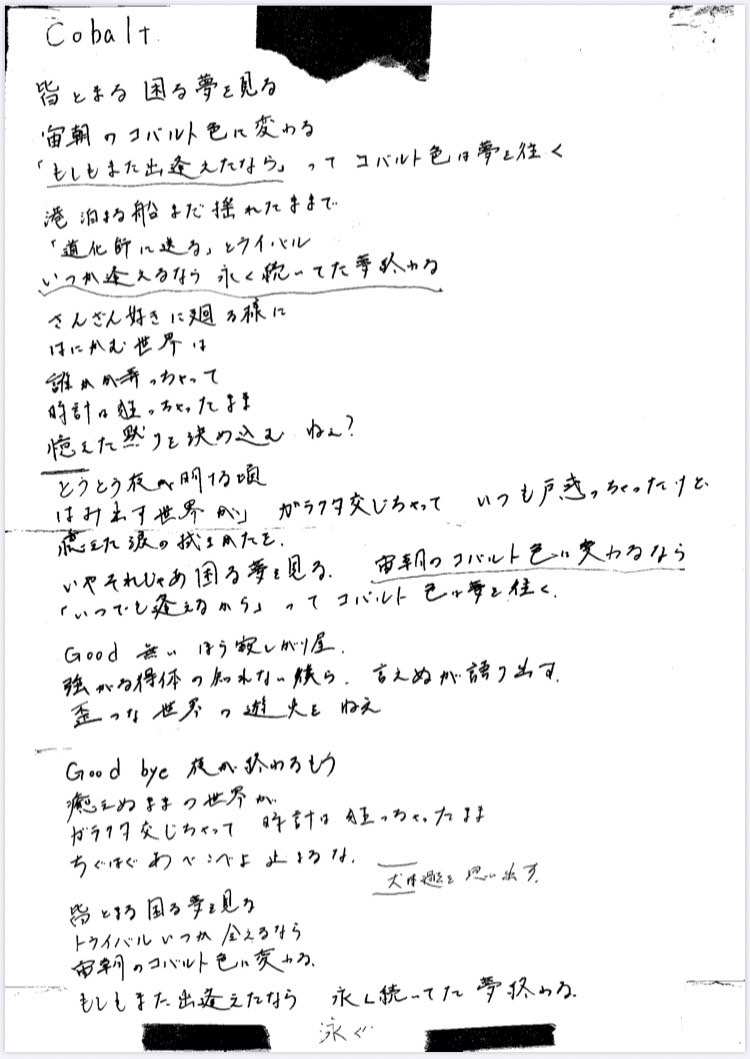 Cobalt
皆とまる 困る夢を見る
宙朝のコバルト色に変わる
「もしもまた出逢えたなら」って コバルト色は夢と往く
港 泊まる船まだ揺れたままで
「道化師に送る」とライバル
いつか逢えるなら 永く続いてた夢終わる
さんざん好きに廻る様に
はにかむ世界は
誰かが弄っちゃって
時計は狂っちゃったまま
憶えた黙りを決め込む ねぇ?
とうとう夜が明ける頃
はみ出す世界が」 ガラクタ交じちゃって いつも戸惑っちゃったけど、
憶えた涙の拭いかたを.
いやそれじゃあ困る夢を見る. 宙朝のコバルト色に変わるなら
「いつでも逢えるから」って コバルト色は夢を往く.
Good 無い ほう寂しがり屋.
強がる得体の知れない僕ら. 言えぬが語り出す.
歪つな世界の遊火を ねえ
Good bye 夜が終わるもう
癒えぬままの世界が
ガラクタ交じちゃって 時計は狂っちゃったまま
ちぐはぐあべこべよ 止まるな.
を思い出す.
皆とまる困る夢を見る
トライバルいつか会えるなら
宙朝のコバルト色に変わる.
もしもまた出逢えたなら 永く続いてた夢終わる.
泳ぐ